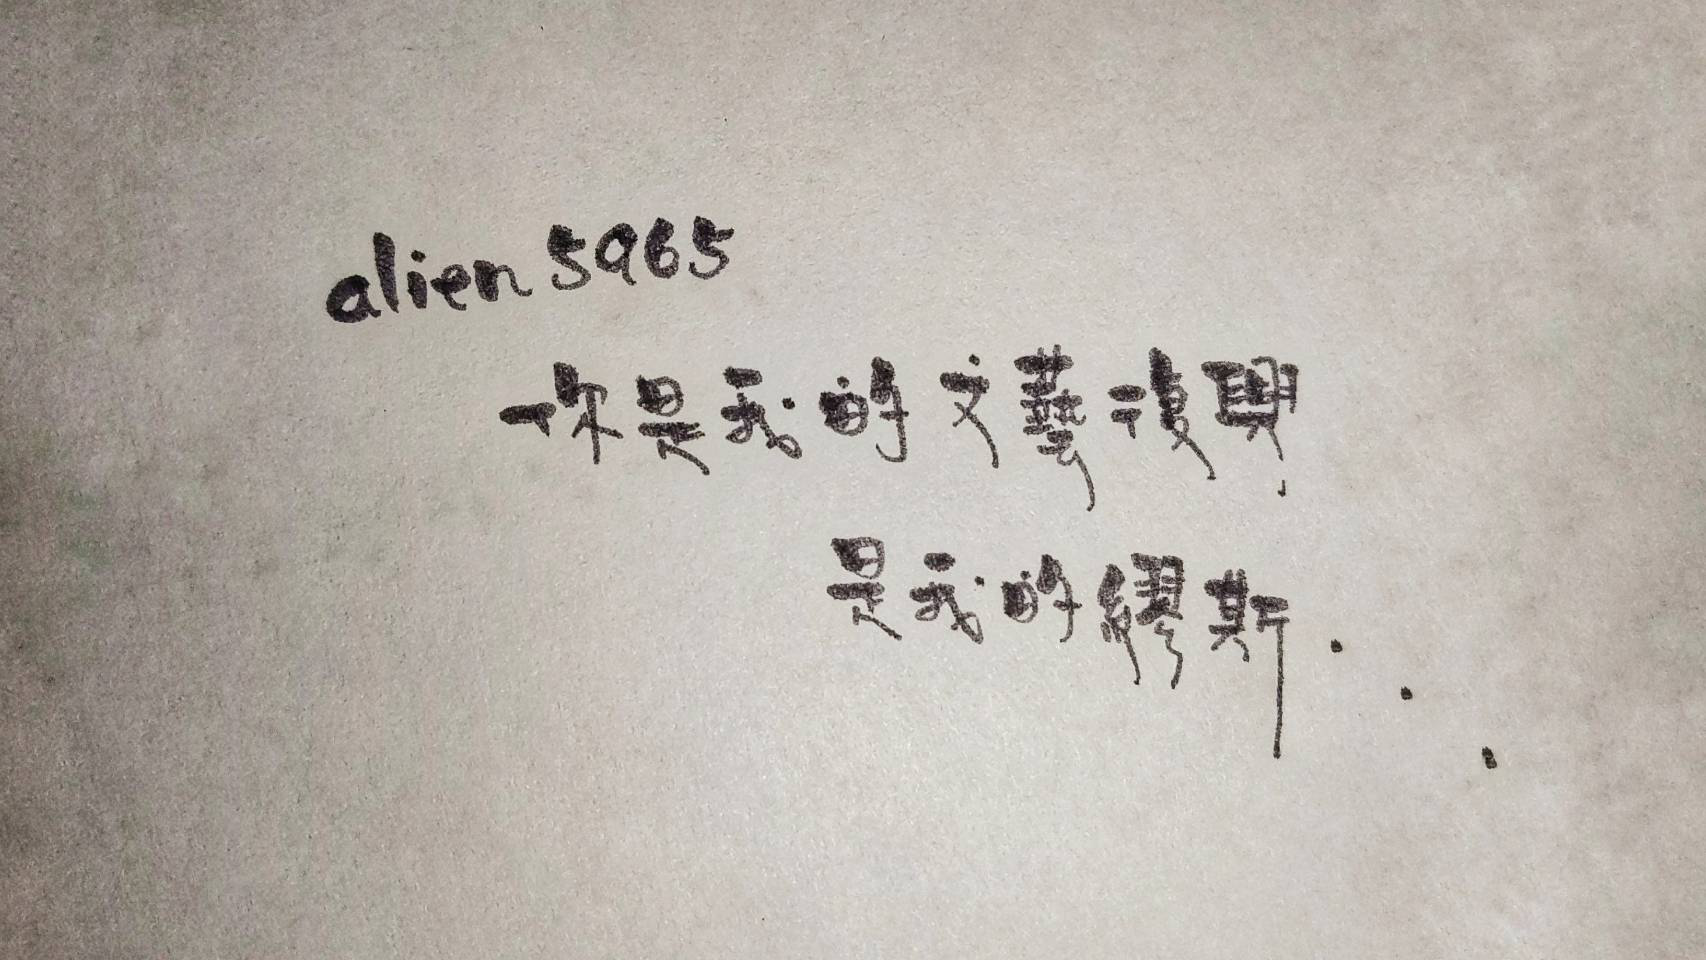 alien5965
你是我的文藝復興
是我的繆斯...